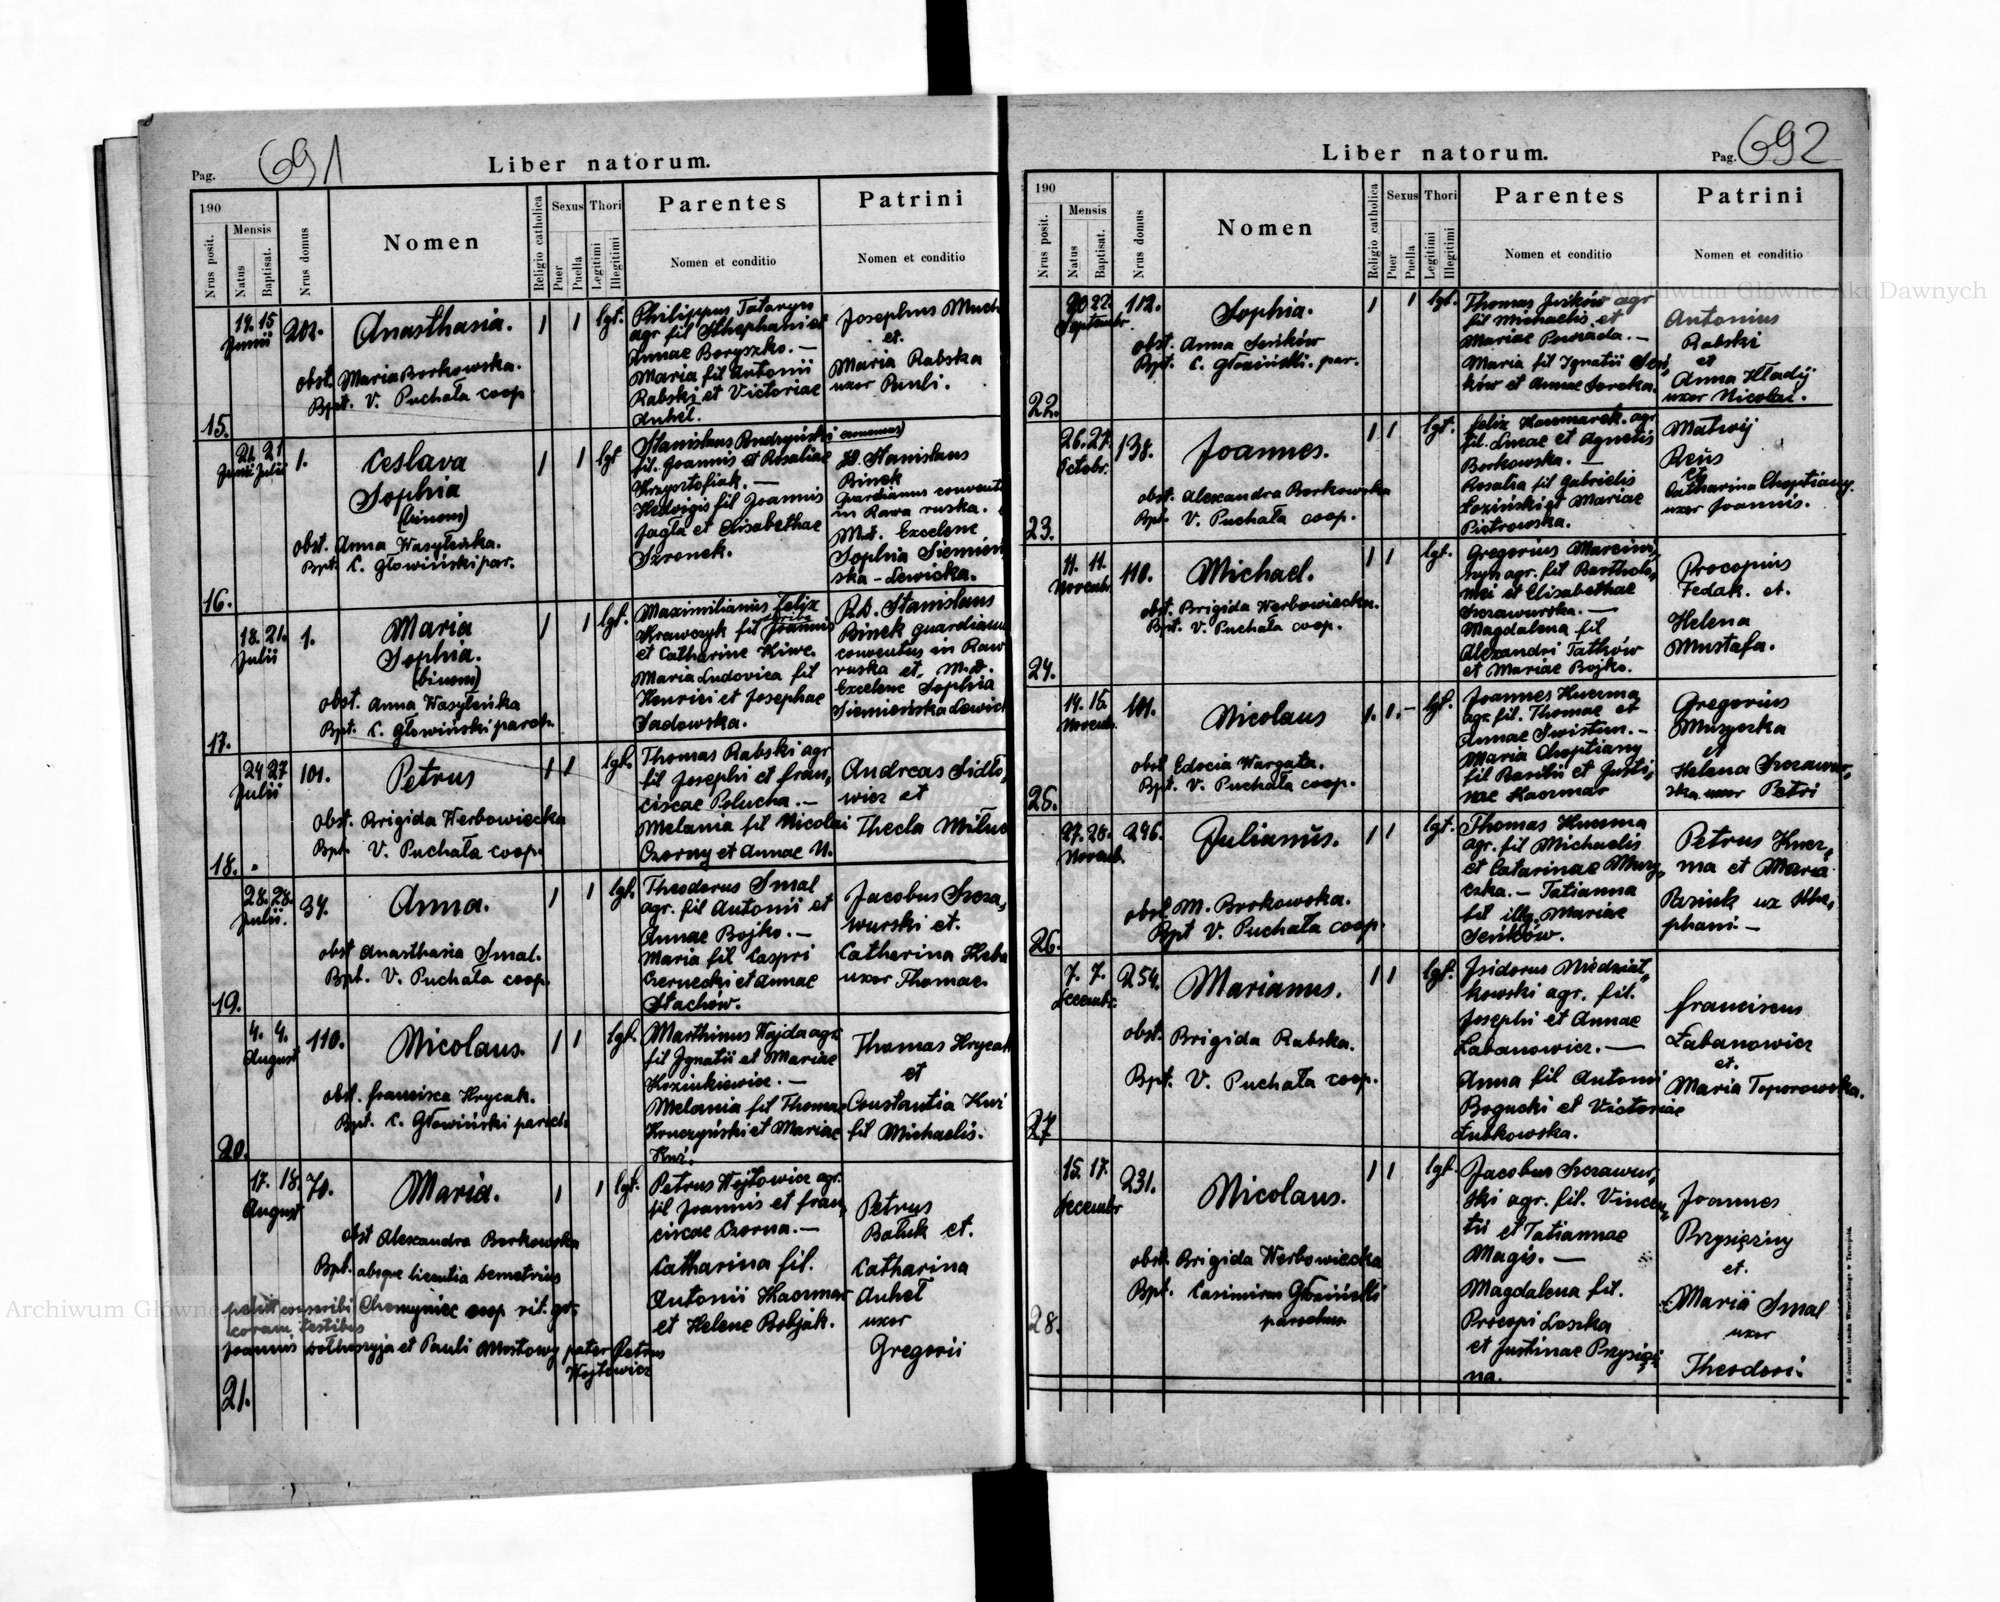 Pag. 691
Liber natorum.
190
Mensis
Nrus posit.
Natus
Baptisat.
Nrus domus
Nomen
Religio catholica
Sexus
Puer
Puella
Thori
Legitimi
Illegitimi
Parentes
Nomen et conditio
Patrini
Nomen et conditio
15.
14. 15
Junii
202.
Anasthasia.
obst. Maria Borkowska.
Bpt. V. Puchała coop.
1 1 lgt.
Philippus Tataryn
agr fil Sthephani et
Annae Boryszko. —
Maria fil Antonii
Rabski et Victoriae
Anhel.
Josephus Much
et.
Maria Rabska
uxor Pauli.
16.
21. 21
Junii Julii
1.
Ceslava
Sophia
(binom)
obst. Anna Wasyleńka.
Bpt. C. Głowiński par.
1 1 lgt
Stanislaus Andrzyński
fil. Joannis et Rosaliae
Krzysztofiak. —
Hedvigis fil Joannis
Jagla et Elisabethae
Szronek.
Stanislaus
Binek
Guardianus convent
in Rawa ruska.
Md. Excelene
Sophia Siemień
ska - Lewicka.
17.
18. 21.
Julii
1.
Maria
Sophia.
(binom)
obst. Anna Wasyleńka
Bpt. C. Głowiński paroch.
1 1 lgt.
Maximilianus Felix
scriba
Krawczyk fil Joannis
et Catharine Kiwe.
Maria Ludovica fil
Henrici et Josephae
Sadowska.
R.D. Stanislaus
Binek guardianus
conventus in Raw
ruska et. M.d.
Excelene Sophia
Siemieńska Lewick
18.
24 27
Julii
101.
Petrus
obst. Brigida Werbowiecka
Bpt. V. Puchała coop.
1 1 lgt.
Thomas Rabski agr
fil Josephi et Fran„
ciscae Polucha. —
Melania fil Nicolai
Czorny et Annae N.
Andreas Sidło„
wicz et
Thecla Miluc
19.
28. 28.
Julii.
34.
Anna.
obst Anasthasia Smal.
Bpt. V. Puchała coop.
1 1 lgt.
Theodorus Smal
agr. fil Antonii et
Annae Bojko. —
Maria fil Caspri
Czernecki et Annae
Stachów.
Jacobus Szcza„
wurski et.
Catharina Heba
uxor Thomae.
20.
4. 4.
August
110.
Nicolaus.
obst. Francisca Hrycak.
Bpt. C. Głowiński paroch.
1 1 lgt.
Marthinus Wajda agr.
fil Ignatii et Mariae
Kozinkiewicz. —
Melania fil Thomae
Kruczyński et Mariae
Kuź.
Thomas Hrycak
et
Constantia Kuź
fil Michaelis.
21.
17. 18.
August
70.
Maria.
obst Alexandra Borkowska
Bpt. absque licentia Demetrius
Chomyniec coop rit. gr.
petiit conscribi
coram testibus
Joannis et Pauli Mostowy pater Petrus
Wojtowicz
1 1 lgt.
Petrus Wojtowicz agr.
fil Joannis et Fran„
ciscae Czorna. —
Catharina fil.
Antonii Kaczmar
et Helene Bobjak.
Petrus
Bałuk et.
Catharina
Anhel
uxor
Gregorii
Liber natorum.
Pag. 692
190
Nrus posit.
Mensis
Natus
Baptisat.
Nrus domus
Nomen
Religio catholica
Sexus
Puer
Puella
Thori
Legitimi
Illegitimi
Parentes
Nomen et conditio
Patrini
Nomen et conditio
22.
20 22.
Septembr.
112.
Sophia.
obst. Anna Seńków
Bpt. C. Głowiński. par.
1 1 lgt.
Thomas Seńków agr
fil Michaelis et
Mariae
Maria fil Ignatii Sen„
ków et Annae Soroka.
Antonius
Rabski
et
Anna Hładij
uxor Nicolai.
23.
26. 27.
Octobr.
138.
Joannes.
obst. Alexandra Borkowska
Bpt. V. Puchała coop.
1 1 lgt.
Felix Kaczmarek agr.
fil. Lucae et Agnetis
Borkowska. —
Rosalia fil Gabrielis
Łoziński et Mariae
Piotrowska.
Matwij
Reüs
et
Catharina Choptiany.
uxor Joannis.
24.
11. 11.
Novembr.
110.
Michael.
obst. Brigida Werbowiecka.
Bpt. V. Puchała coop.
1 1 lgt.
Gregorius Marcini„
szyn agr. fil Bartholo„
mei et Elisabethae
Szczawurska. —
Magdalena fil
Alexandri Tatków
et Mariae Bojko.
Procopius
Fedak. et.
Helena
Mustafa.
25.
14. 16.
Novemb.
101.
Nicolaus
obst Edocia Wargata.
Bpt. V. Puchała coop.
1. 1. — lgt.
Joannes Kuczma
agr. fil. Thomae et
Annae Swistun. —
Maria Choptiany
fil Basilii et Justi„
nae Kaczmar
Gregorius
Muszczka
et
Helena Szczawur„
ska uxor Petri
26.
27. 28.
Novemb.
296.
Julianus.
obst M. Borkowska.
Bpt V. Puchała coop.
1 1 lgt.
Thomas Kuczma
agr. fil Michaelis
et Catarinae Musz„
czka. — Tatianna
fil illg. Mariae
Seńków.
Petrus Kucz„
ma et Maria
ux Sthe„
phani. —
27
7. 7.
Decembr.
254.
Marianus.
obst. Brigida Rabska.
Bpt. V. Puchała coop.
1 1 lgt.
Isidorus Niedźiał„
kowski agr. fil.
Josephi et Annae
Łabanowicz. —
Anna fil Antonii
Bogucki et Victoriae
Łubkowska.
Franciscus
Łabanowicz
et.
Maria Toporowska.
28.
15. 17.
Decembr
231.
Nicolaus.
obst. Brigida Werbowiecka
Bpt. Casimirus Głowiński
parochus
1 1 lgt.
Jacobus Szczawur„
ski agr. fil. Vincen„
tii et Tatiannae
Magis. —
Magdalena fil.
Procopi Loszka
et Justinae Przysięż
na.
Joannes
Przysiężny
et.
Maria Smal
uxor
Theodori.
Archiwum Główne Akt Dawnych
Archiwum Główne